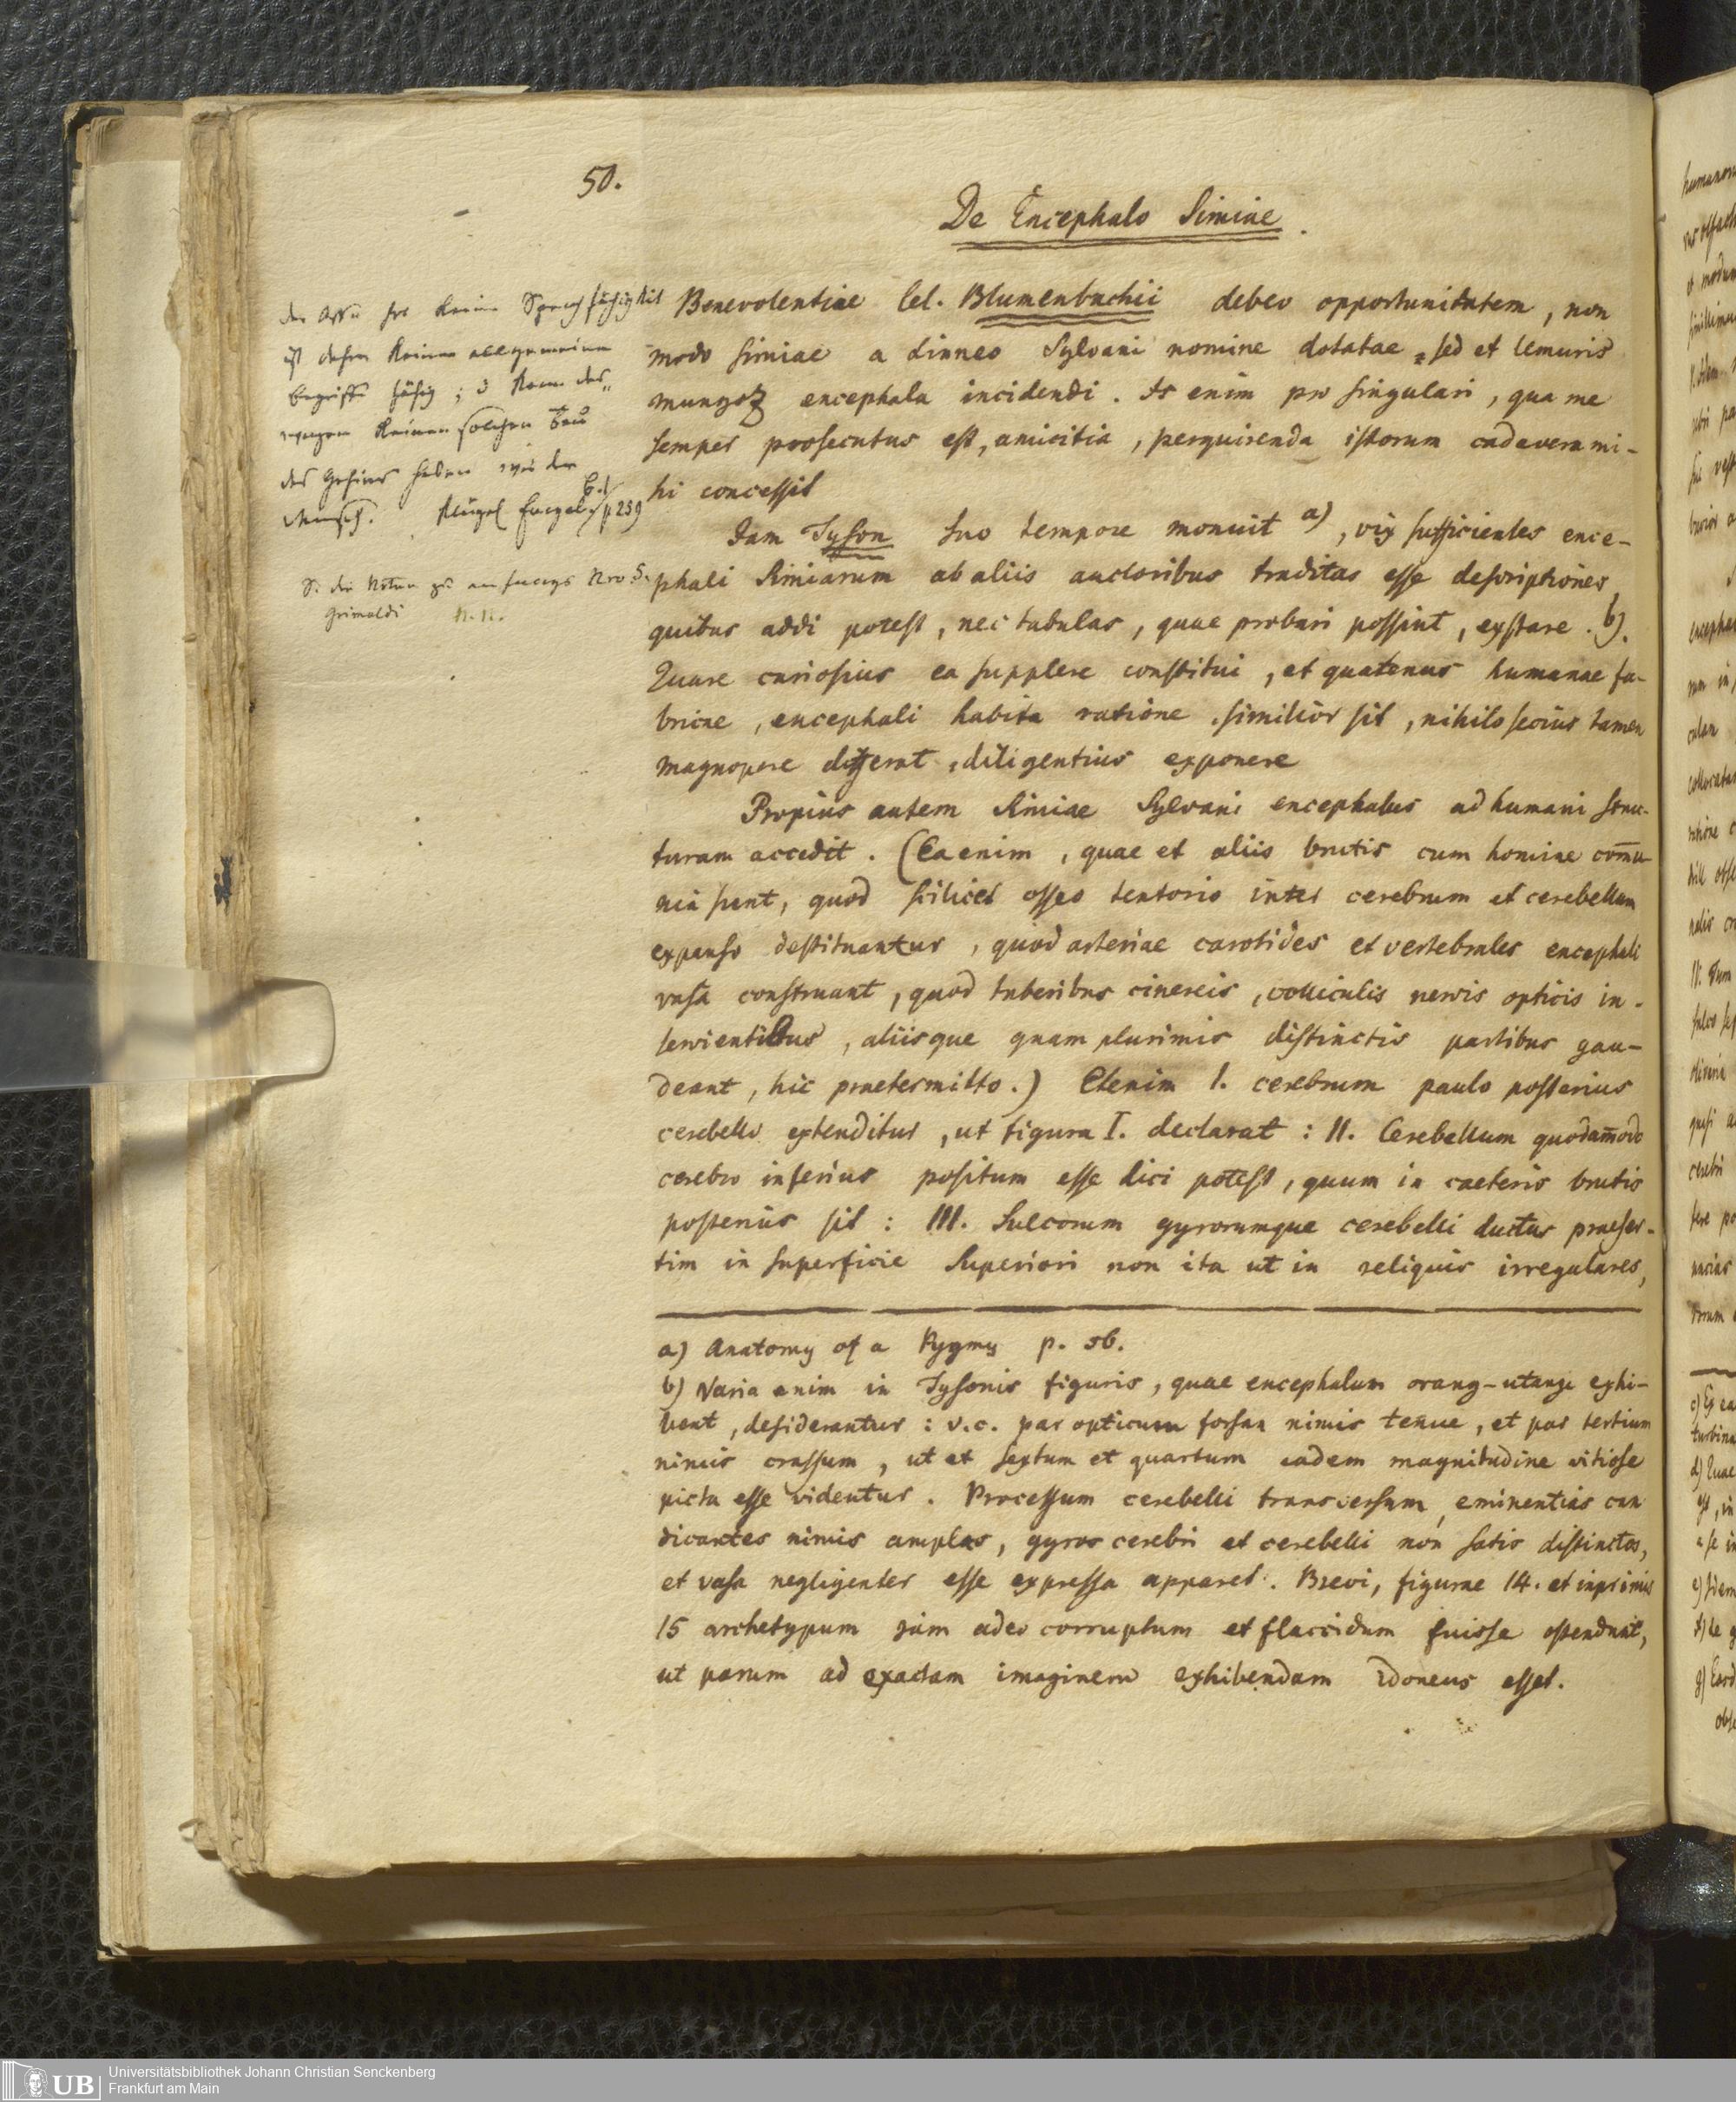 50.
De Encephalo Simiae.
der Affe hat keine Sprachfähigkeit
ist daher keiner allgemeinen
begriffe fähig; u kann des„
wegen keinen solchen Bau
des Gehirns haben wie der
Mensch. Klügel Encyclop. B. 1. p 259
S. die Noten zu anfangs Nro 5.
Grimaldi N. 11.
Benevolentiae Cel. Blumenbachii debeo opportunitatem, non
modo simiae a Linneo Sylvani nomine dotatae, sed et lemuris
mungoz encephala incidendi. Is enim pro singulari, qua me
semper prosecutus est, amicitia, perquirenda istorum cadavera mi-
hi concessit
Jam Tyson suo tempore monuit a), vix sufficientes ence-
phali Simiarum ab aliis auctoribus traditas esse descriptiones,
quibus addi potest, nec tabulas, quae probari possint, exstare. b).
Quare curiosius ea supplere constitui, et quatenus humanae fa-
bricae, encephali habita ratione, similior sit, nihilo secius tamen
magnopere differat, diligentius exponere
Propius autem Simiae Sylvani encephalus ad humani struc-
turam accedit. (Ea enim, quae et aliis brutis cum homine com̄u-
nia sunt, quod scilicet osseo tentorio inter cerebrum et cerebellum
expanso destituantur, quod arteriae carotides et vertebrales encephali
vasa construant, quod tuberibus cinereis, colliculis nervis opticis in-
servientibus, aliisque quam plurimis distinctis partibus gau-
deant, hic praetermitto.) Etenim I. cerebrum paulo posterius
cerebello extenditur, ut figura I. declarat: II. Cerebellum quodam̄odo
cerebro inferius positum esse dici potest, quum in caeteris brutis
posterius sit: III. Sulcorum gyrorumque cerebelli ductus praeser-
tim in superficie Superiori non ita ut in reliquis irregulares,
a) Anatomy of a Pygmy p. 56.
b) Varia enim in Tysonis figuris, quae encephalum orang-utangi exhi-
bent, desiderantur: v.c. par opticum forsan nimis tenue, et par tertium
nimis crassum, ut et sextum et quartum eadem magnitudine vitiose
picta esse videntur. Processum cerebelli transversum, eminentias can
dicantes nimis amplas, gyros cerebri et cerebelli non satis distinctos,
et vasa negligenter esse expressa apparet. Brevi, figurae 14. et inprimis
15 archetypum jam adeo corruptum et flaccidum fuisse ostendunt,
ut parum ad exactam imaginem exhibendam idoneus esset.
Universitätsbibliothek Johann Christian Senckenberg
Frankfurt am Main
UB